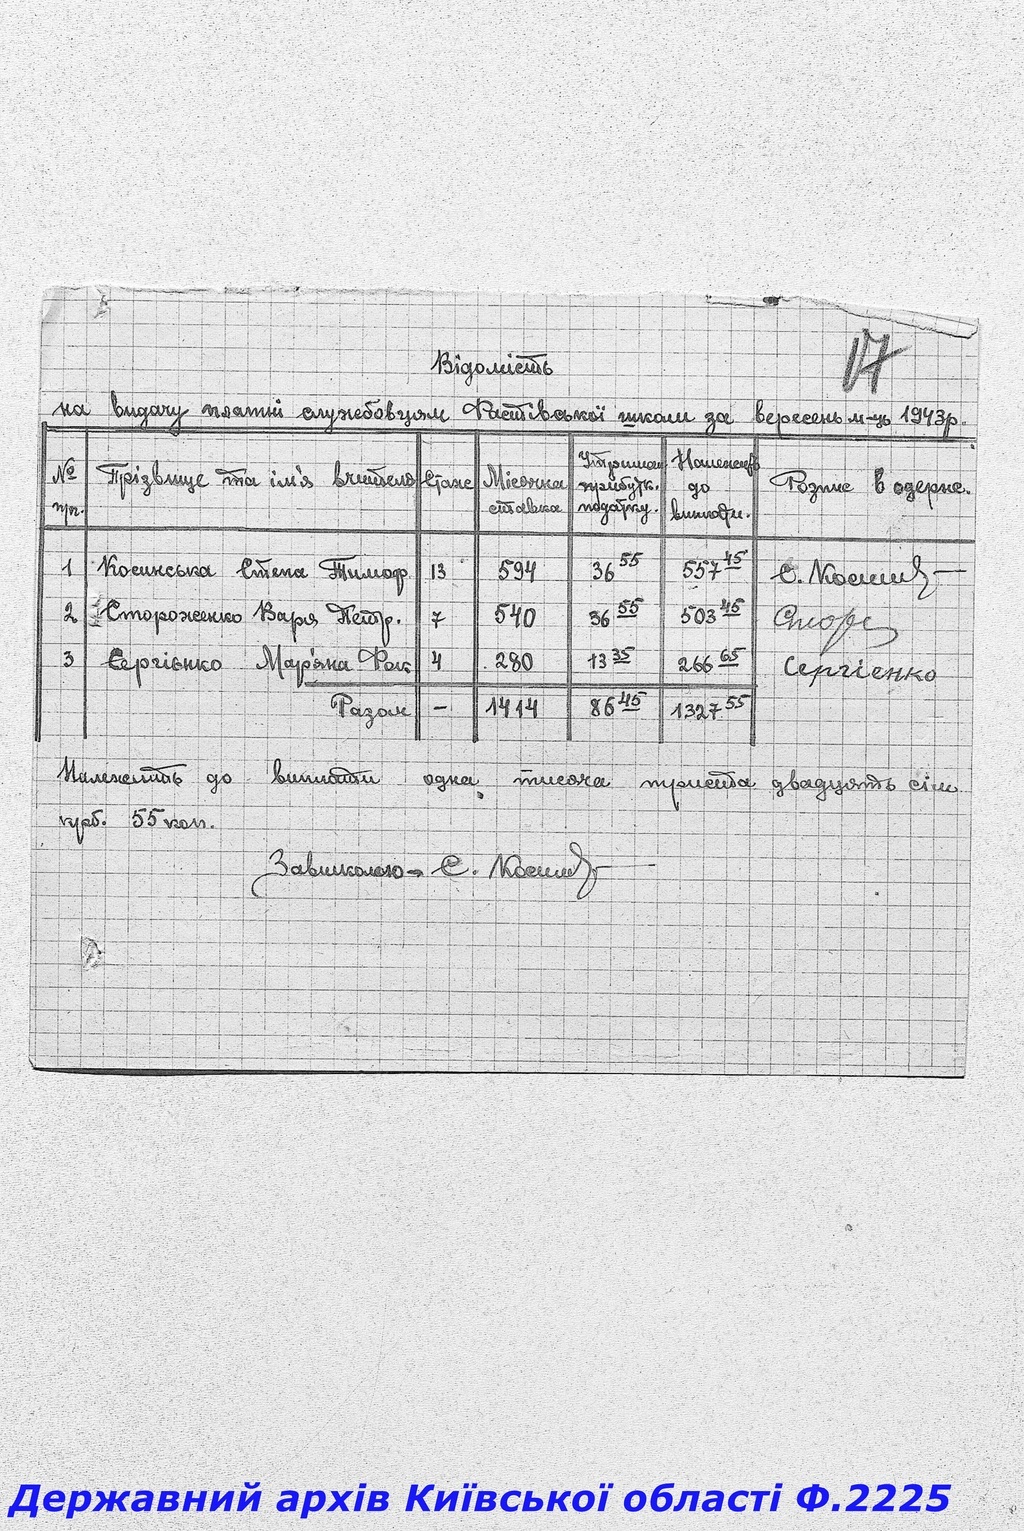 17
Відомість
на видачу платні службовцям Фастівської школи за вересень м-ць 1943р.
№ пп. Прізвище та ім'я вчителя Стаж Місячна ставка Утриман прибутк. податку. Належить до виплати. Розпис в одерж.
1 Косинська Степа Тимоф. 13 594 36 55 557 45
2 Стороженко Варя Петр. 7 540 36 55 503 45
3 Сергієнко Мар'яна Фок 4 280 13 35 266 65 Сергієнко
Разом — 1414 86 45 1327 55
Належить до виплати одна тисяча триста двадцять сім
крб. 55 коп.
Завшколою - С.
Державний архів Київської області Ф.2225